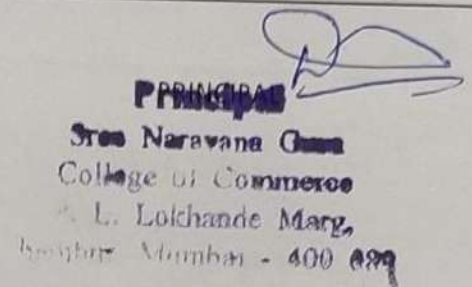 PRINCIPAL
Principal
Sree Narayana Guru
College of Commerce
L. Lokhande Marg,
Mumbai - 400 089